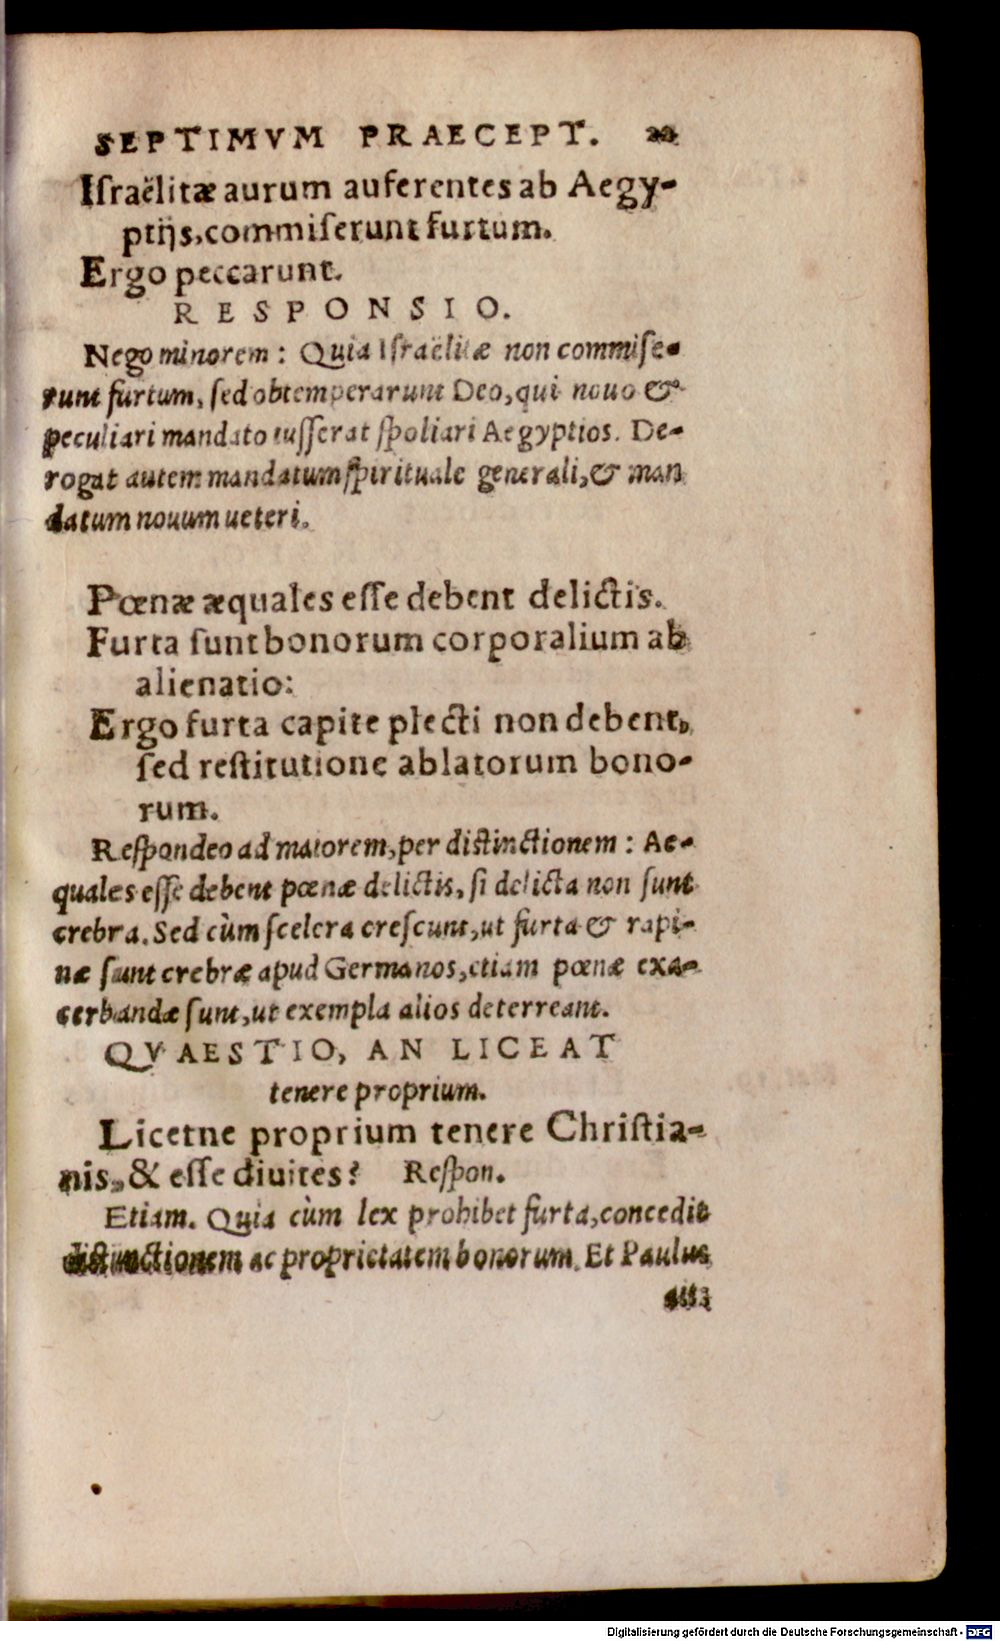 SEPTIMVM PRAECEPT.
Iſraëlitæ aurum auferentes ab Aegy-
ptijs, commiſerunt furtum.
Ergo peccarunt.
RESPONSIO.
Nego minorem: Quia Iſraëlitæ non commiſe-
runt furtum, ſed obtemperarunt Deo, qui nouo &
peculiari mandato iuſſerat ſpoliari Aegyptios. De-
rogat autem mandatum ſpirituale generali, & man
datum nouum ueteri.
Pœnæ æquales eſſe debent delictis.
Furta ſunt bonorum corporalium ab
alienatio:
Ergo furta capite plecti non debent,
ſed reſtitutione ablatorum bono-
rum.
Reſpondeo ad maiorem, per diſtinctionem: Ae-
quales eſſe debent pœnæ delictis, ſi delicta non ſunt
crebra. Sed cùm ſcelera creſcunt, ut furta & rapi-
næ ſunt crebræ apud Germanos, etiam pœnæ exa-
cerbandæ ſunt, ut exempla alios deterreant.
QVAESTIO, AN LICEAT
tenere proprium.
Licetne proprium tenere Chriſtia-
nis, & eſſe diuites? Reſpon.
Etiam. Quia cùm lex prohibet furta, concedit
diſtinctionem ac proprietatem bonorum. Et Paulus
Digitalisierung gefördert durch die Deutsche Forschungsgemeinschaft - DFG